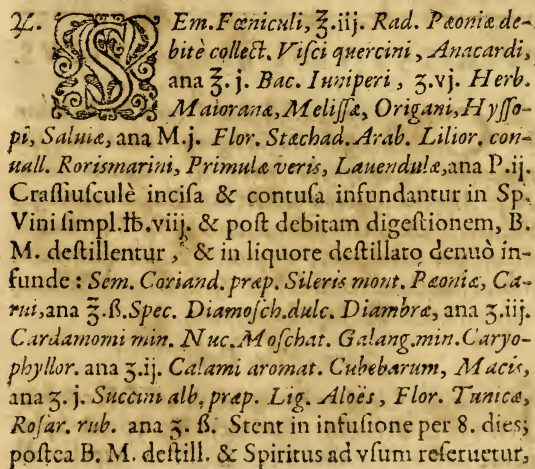 ♃. SEm. Fœniculi, ℥.iij. Rad. Pæoniæ de-
bitè collect. Visci quercini, Anacardi,
ana ℥. j. Bac. Iuniperi, ʒ.vj. Herb.
Maioranæ, Melissæ, Origani, Hysso-
pi, Saluiæ, ana M.j. Flor. Stæchad. Arab. Lilior. con-
uall. Rorismarini, Primulæ veris, Lauendulæ, ana P.ij.
Crassiusculè incisa & contusa infundantur in Sp.
Vini simpl. ℔.viij. & post debitam digestionem, B.
M. destillentur, & in liquore destillato denuò in-
funde: Sem. Coriand. præp. Sileris mont. Pæoniæ, Ca-
rui, ana ℥.ß. Spec. Diamosch. dulc. Diambræ, ana ʒ.iij.
Cardamomi min. Nuc. Moschat. Galang. min. Caryo-
phyllor. ana ʒ.ij. Calami aromat. Cubebarum, Macis,
ana ʒ. j. Succini alb. præp. Lig. Aloës, Flor. Tunicæ,
Rosar. rub. ana ʒ. ß. Stent in infusione per 8. dies;
postea B. M. destill. & Spiritus ad vsum reseruetur,